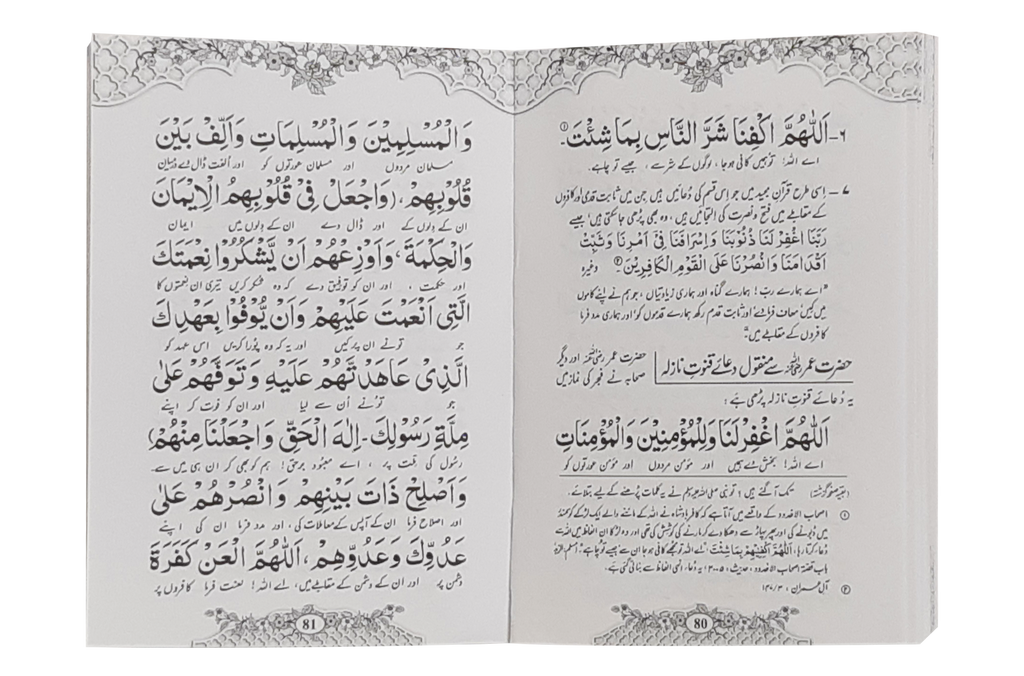 ۶۔ اَللّٰهُمَّ اكْفِنَا شَرَّ النَّاسِ بِمَا شِئْتَ۔ ①
اے اللہ! تو ہمیں کافی ہو جا، لوگوں کے شر سے، جیسے تو چاہے۔
۷ ۔ اسی طرح قرآن مجید میں جو اس قسم کی دُعائیں ہیں جن میں ثابت قدمی اور کافروں
کے مقابلے میں فتح و نصرت کی التجائیں ہیں، وہ بھی پڑھی جا سکتی ہیں، جیسے
رَبَّنَا اغْفِرْ لَنَا ذُنُوْبَنَا وَاِسْرَافَنَا فِيْٓ اَمْرِنَا وَثَبِّتْ
اَقْدَامَنَا وَانْصُرْنَا عَلَى الْقَوْمِ الْكَافِرِيْنَ۔ ② وغیرہ
"اے ہمارے رب! ہمارے گناہ اور ہماری زیادتیاں، جو ہم نے اپنے کاموں
میں کیں، معاف فرما دے اور ثابت قدم رکھ ہمارے قدموں کو اور ہماری مدد فرما
کافروں کے مقابلے میں۔"
حضرت عمر رضی اللہ عنہ سے منقول دعائے قنوتِ نازلہ
حضرت عمر رضی اللہ عنہ اور دیگر
صحابہ نے فجر کی نماز میں
یہ دُعائے قنوتِ نازلہ پڑھی ہے:
اَللّٰهُمَّ اغْفِرْ لَنَا وَلِلْمُؤْمِنِيْنَ وَالْمُؤْمِنَاتِ
اے اللہ! بخش دے ہمیں اور مومن مردوں اور مومن عورتوں کو
(بقیہ صفحہ گزشتہ) تک آگئے ہیں، تو نبی صلی اللہ علیہ وسلم نے یہ کلمات پڑھنے کے لیے بتلائے۔
① اصحاب الاخدود کے واقعے میں آتا ہے کہ کافر بادشاہ نے اللہ کے ماننے والے ایک لڑکے کو سمندر
میں ڈبونے کی اور پھر پہاڑ سے دھکا دے کر مارنے کی کوشش کی تھی اور وہ لڑکا ان الفاظ میں اللہ سے
دُعا کرتا رہا، اَللّٰهُمَّ اكْفِنِيْهِمْ بِمَا شِئْتَ "اے اللہ تو مجھے کافی ہو جا ان سے جیسے تو چاہے"۔ (مسلم، الزہد
باب قصۃ اصحاب الاخدود، حدیث، ۳۰۰۵، یہ دُعا، انہی الفاظ سے بنائی گئی ہے۔
② آل عمران، ۳/۱۴۷
80
وَالْمُسْلِمِيْنَ وَالْمُسْلِمَاتِ وَاَلِّفْ بَيْنَ
مسلمان مردوں اور مسلمان عورتوں کو اور اُلفت ڈال دے درمیان
قُلُوْبِهِمْ، (وَاجْعَلْ فِيْ قُلُوْبِهِمُ الْاِيْمَانَ
ان کے دلوں کے اور ڈال دے ان کے دلوں میں ایمان
وَالْحِكْمَةَ، وَاَوْزِعْهُمْ اَنْ يَّشْكُرُوْا نِعْمَتَكَ
اور حکمت، اور ان کو توفیق دے کہ وہ شکر کریں تیری ان نعمتوں کا
الَّتِيْ اَنْعَمْتَ عَلَيْهِمْ وَاَنْ يُّوْفُوْا بِعَهْدِكَ
جو تو نے ان پر کیں اور یہ کہ وہ پورا کریں اس عہد کو
الَّذِيْ عَاهَدْتَّهُمْ عَلَيْهِ وَتَوَفَّهُمْ عَلٰى
جو تو نے اُن سے لیا اور ان کو فوت کر اپنے
مِلَّةِ رَسُوْلِكَ۔ اِلٰهَ الْحَقِّ وَاجْعَلْنَا مِنْهُمْ)
رسول کی ملت پر، اے معبود برحق! ہم کو بھی کر ان ہی میں سے۔
وَاَصْلِحْ ذَاتَ بَيْنِهِمْ وَانْصُرْهُمْ عَلٰى
اور اصلاح فرما ان کے آپس کے معاملات کی، اور مدد فرما ان کی اپنے
عَدُوِّكَ وَعَدُوِّهِمْ، اَللّٰهُمَّ الْعَنْ كَفَرَةَ
دشمن پر اور ان کے دشمن کے مقابلے میں، اے اللہ! لعنت فرما کافروں پر
81